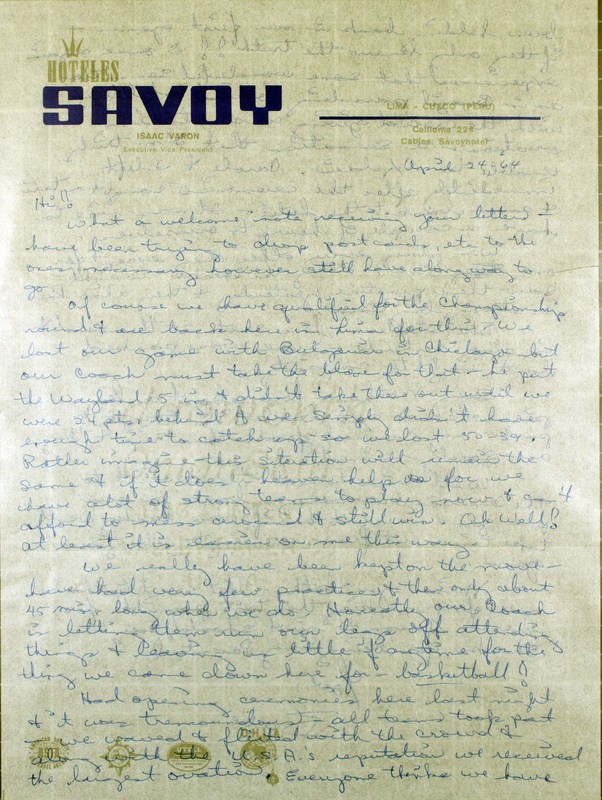 HOTELES
SAVOY
ISAAC VARON
Executive Vice President
LIMA - CUSCO (PERU)
Cailloma 224
Cables: Savoyhotel
April 24, 64
Hi!
What a welcome note receiving your letter -
have been trying to drop postcards, etc to the
ones necessary however still have a long way to
go.
Of course we have qualified for the Championship
round & are back here in Lima for this. We
lost our game with Bulgaria in Chiclayo but
our Coach must take the blame for that - he put
the Wayland 5 in & didn't take them out until we
were 24 pts. behind & we simply didn't have
enough time to catch up so we lost 50-39.
Rather imagine this situation will remain the
same & if it does - heaven help us for we
have alot of strong teams to play now & can't
afford to mess around & still win. Oh Well!
at least it is easier on me this way.
We really have been kept on the move -
have had very few practices & then only about
45 min. long when we do. Honestly our Coach
is letting them run our legs off attending
things & leaving us little if anytime for the
thing we came down here for - basketball!
Had opening ceremonies here last night
& it was tremendous! - all teams took part
- we waved & flirted with the crowd &
along with the U.S.A.'s reputation we received
the largest ovation. Everyone thinks we have